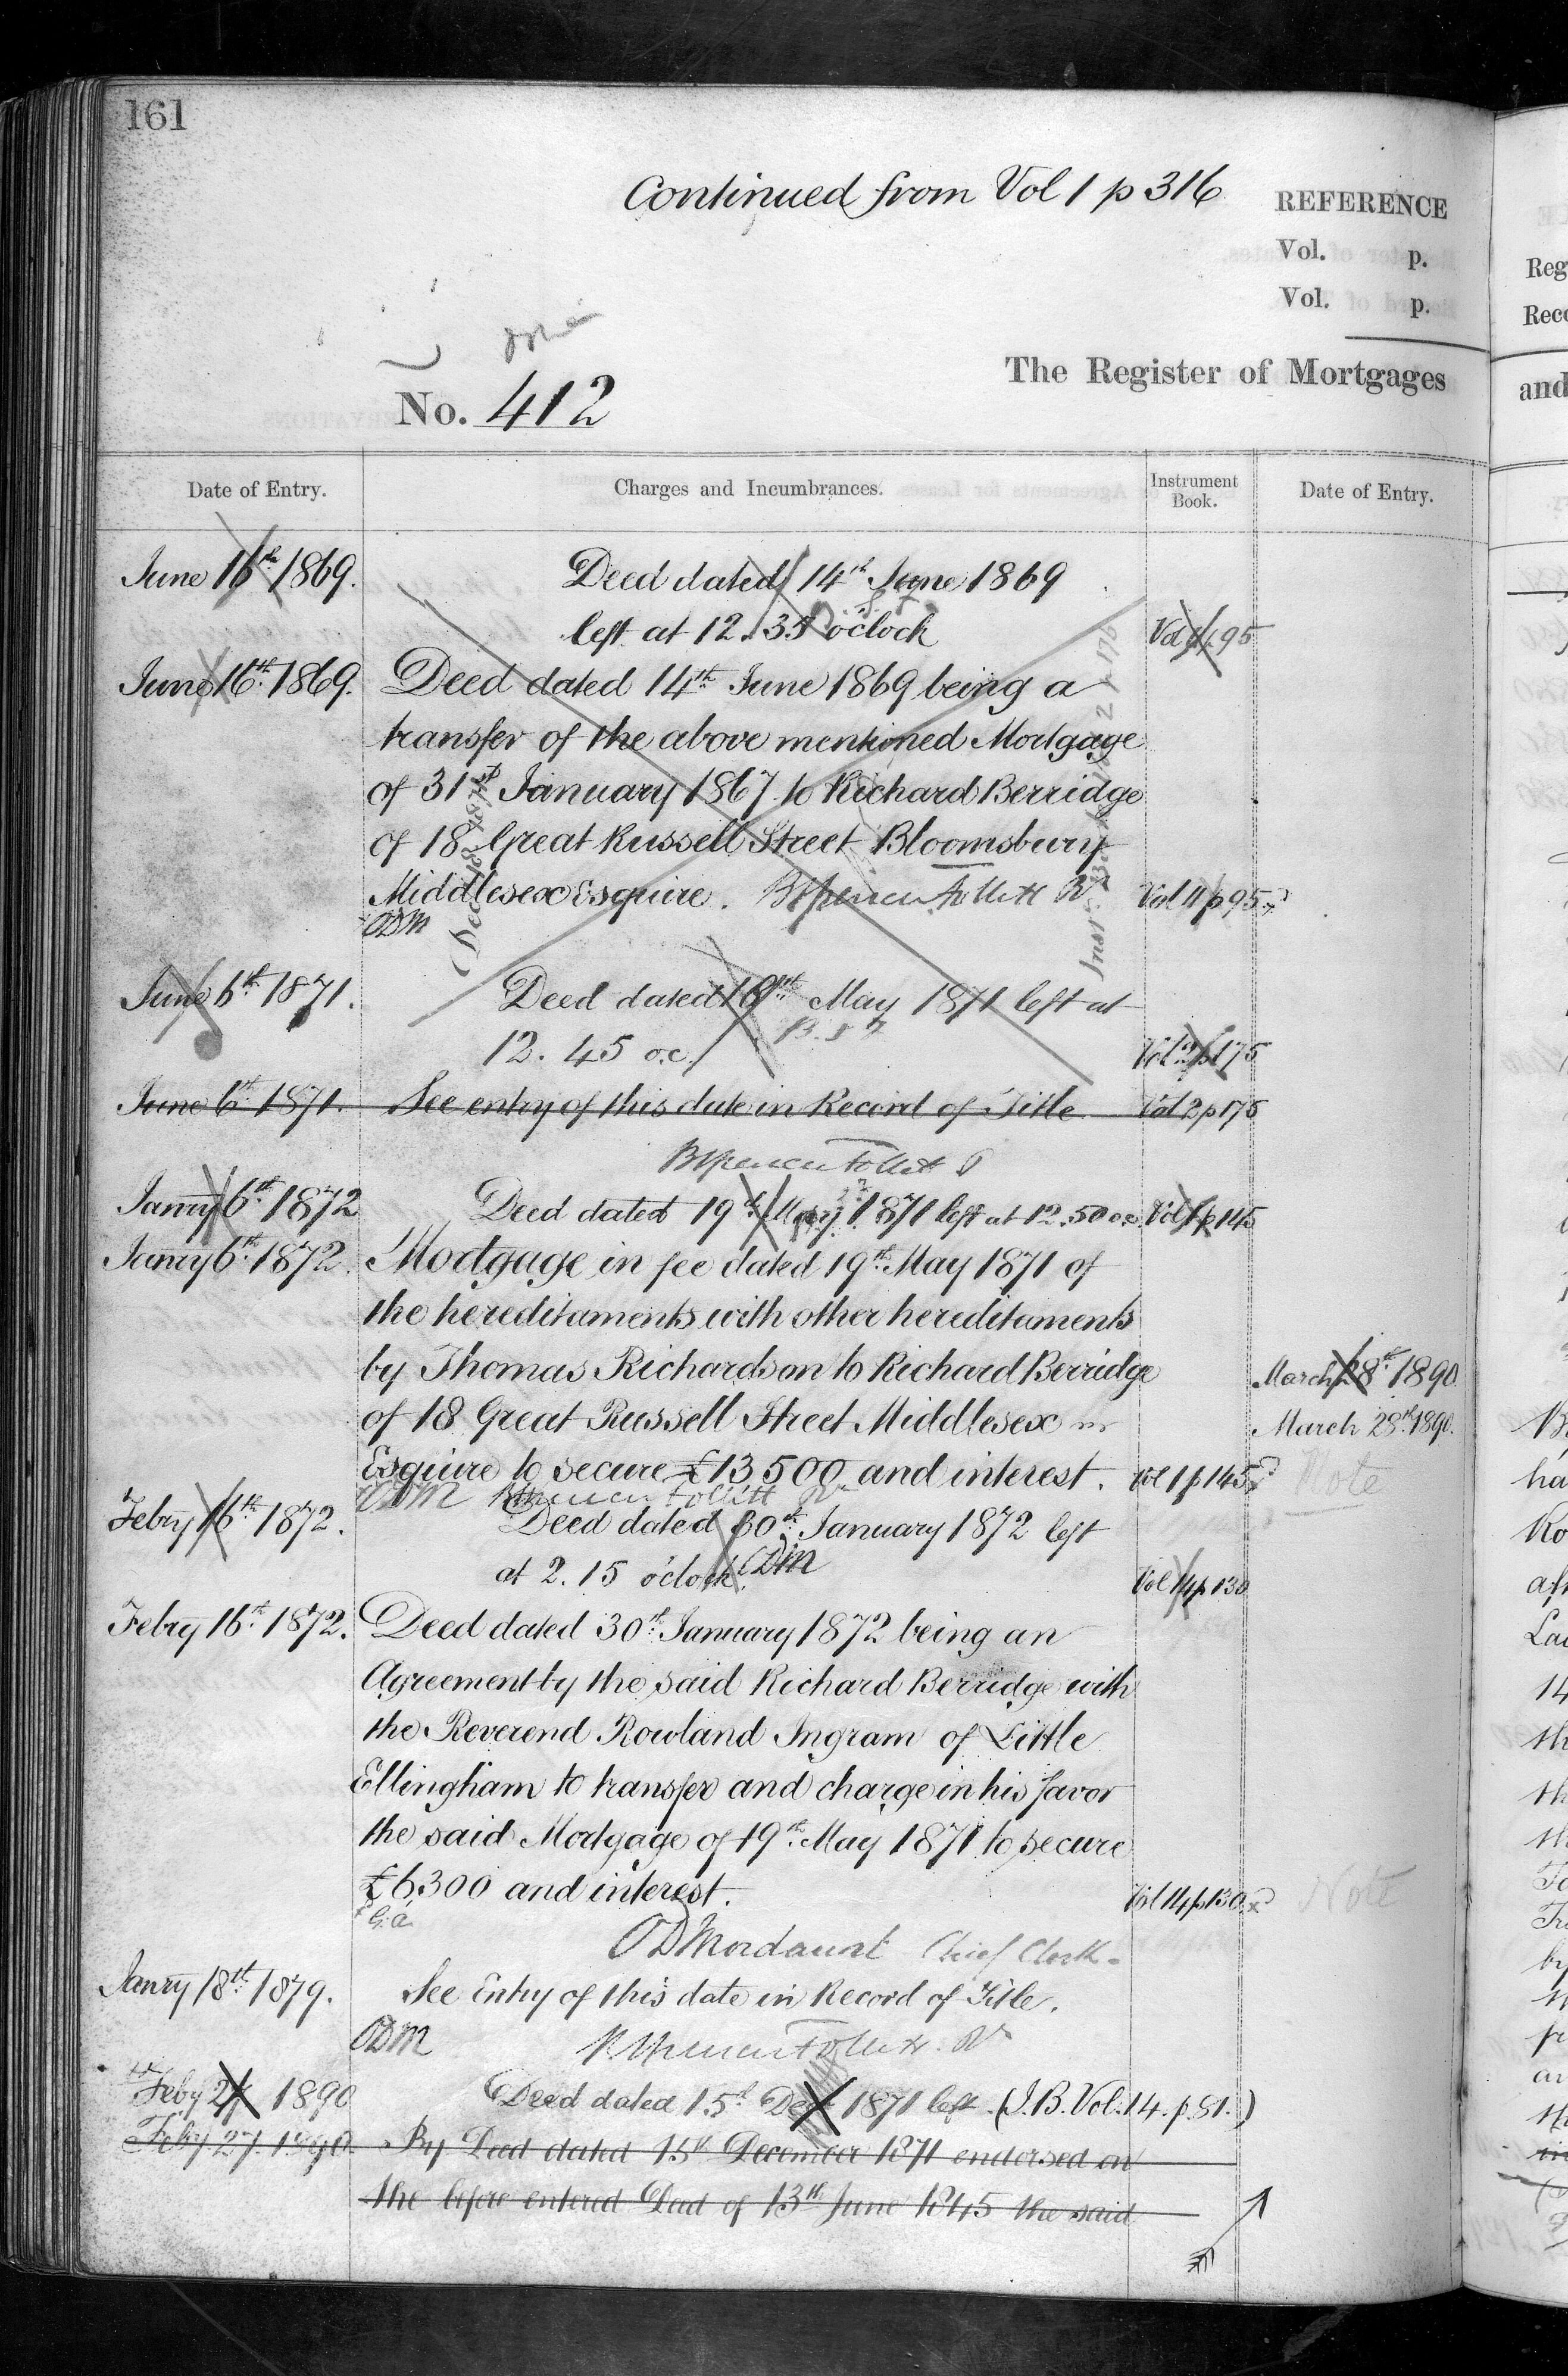 161
Continued from Vol 1 p 316
REFERENCE
Vol. p.
Vol. p.
The Register of Mortgages
No. 412
Date of Entry.
Charges and Incumbrances.
Instrument Book.
Date of Entry.
June 16th 1869. Deed dated 14th June 1869
left at 12.35 o'clock Vol 11 p 95
June 16th 1869. Deed dated 14th June 1869 being a
transfer of the above mentioned Mortgage
of 31st January 1867 to Richard Berridge
of 18 Great Russell Street Bloomsbury
Middlesex Esquire. BSpencer Follett Rr Vol 11 p 95
ODM
June 6th 1871. Deed dated 19th May 1871 left at
12.45 o.c. Vol 2 p 175
June 6th 1871. See entry of this date in Record of Title Vol 2 p 175
BSpencer Follett
Janry 6th 1872 Deed dated 19th May 1871 left at 12.50 o.c. Vol 1 p 145
Janry 6th 1872. Mortgage in fee dated 19th May 1871 of
the hereditaments with other hereditaments
by Thomas Richardson to Richard Berridge
March 28th 1890.
of 18 Great Russell Street Middlesex
March 28th 1890.
Esquire to secure £13,500 and interest. Vol 1 p 145 Note
ODM BSpencer Follett Rr
Febry 16th 1872. Deed dated 30th January 1872 left
at 2.15 o'clock. ODM Vol 14 p 130
Febry 16th 1872. Deed dated 30th January 1872 being an
Agreement by the said Richard Berridge with
the Reverend Rowland Ingram of Little
Ellingham to transfer and charge in his favor
the said Mortgage of 19th May 1871 to secure
£6300 and interest. Vol 14 p 130 Note
G.a.
ODMordaunt Chief Clerk
Janry 18th 1879. See Entry of this date in Record of Title.
ODM BSpencer Follett Rr
Feby 27 1890 Deed dated 15th Decr 1871 left (I.B. Vol: 14. p. 81.)
Feby 27 1890. By Deed dated 15th December 1871 endorsed on
the before entered Deed of 13th June 1845 the said
Reg
Reco
and